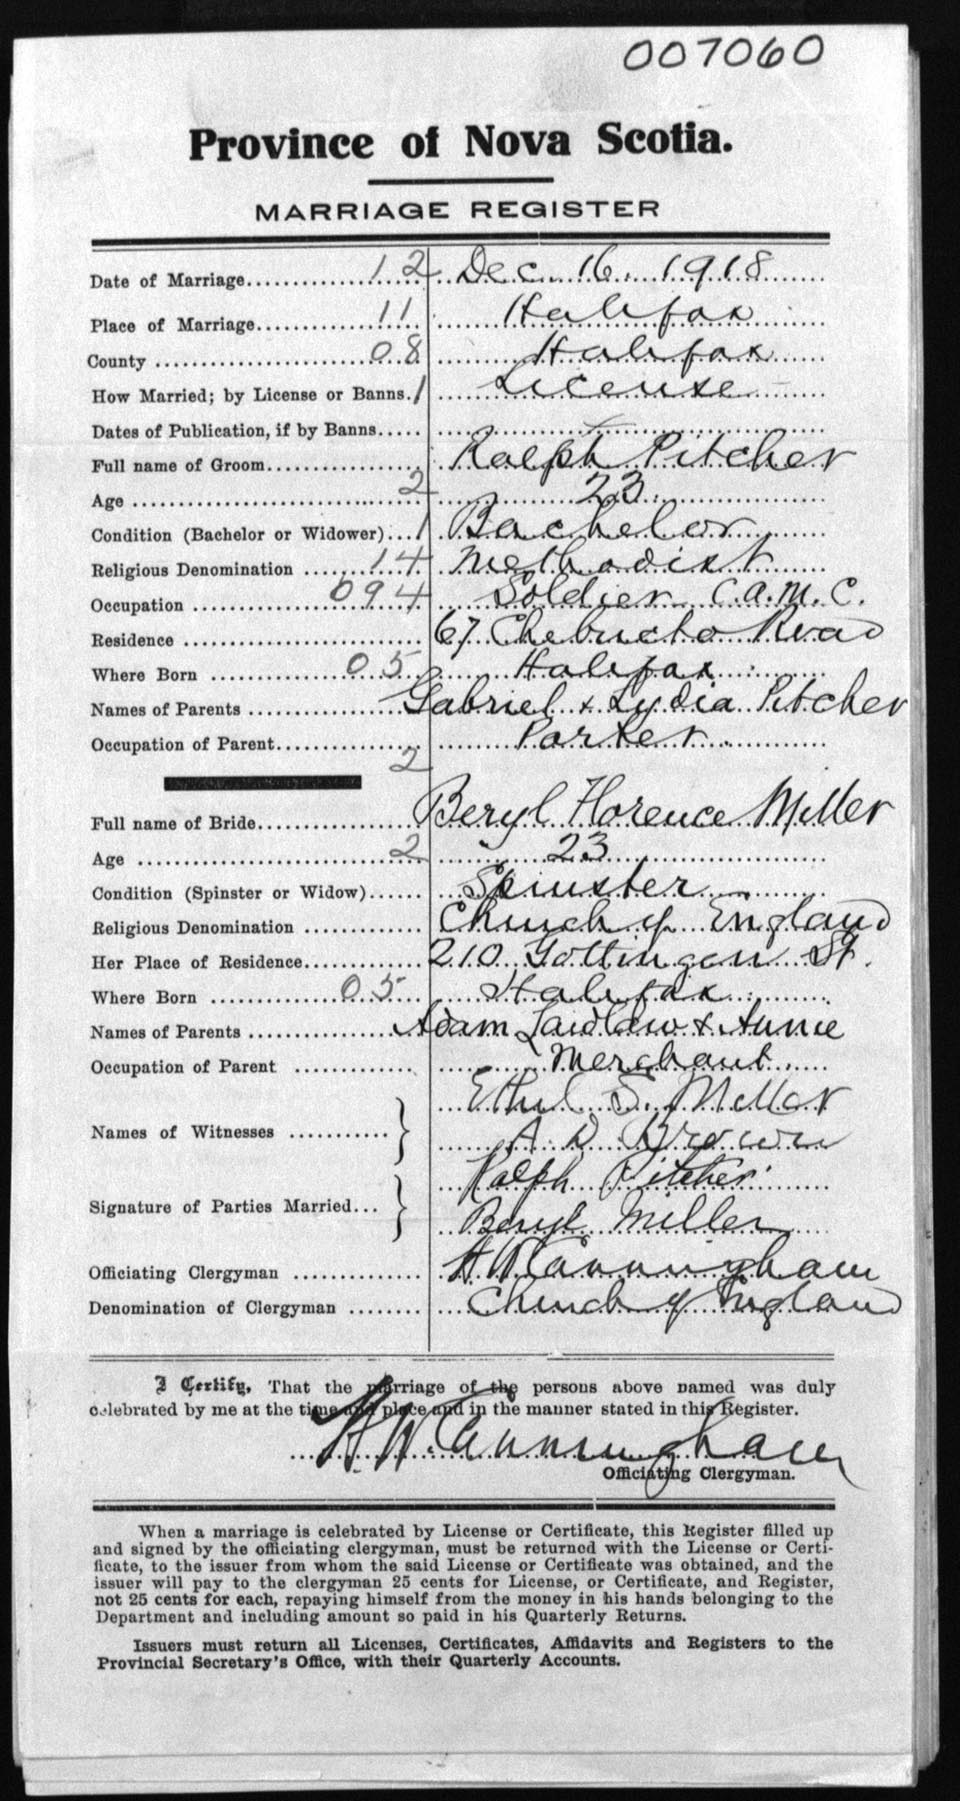 007060
Province of Nova Scotia.
MARRIAGE REGISTER
Date of Marriage 12 Dec. 16. 1918
Place of Marriage 11 Halifax
County 08 Halifax
How Married; by License or Banns. 1 License
Dates of Publication, if by Banns
Full name of Groom Ralph Pitcher
Age 2 23
Condition (Bachelor or Widower) 1 Bachelor
Religious Denomination 14 Methodist
Occupation 094 Soldier C.A.M.C.
Residence 67 Chebucto Road
Where Born 05 Halifax
Names of Parents Gabriel & Lydia Pitcher
Occupation of Parent Porter
2
Full name of Bride Beryl Florence Miller
Age 2 23
Condition (Spinster or Widow) Spinster
Religious Denomination Church of England
Her Place of Residence 210 Gottingen St.
Where Born 05 Halifax
Names of Parents Adam Laidlaw & Annie
Occupation of Parent Merchant
Ethel S. Miller
Names of Witnesses
A. D. Brown
Ralph Pitcher
Signature of Parties Married
Beryl Miller
Officiating Clergyman H W Cunningham
Denomination of Clergyman Church of England
I Certify, That the marriage of the persons above named was duly
celebrated by me at the time and place and in the manner stated in this Register.
H. W. Cunningham
Officiating Clergyman.
When a marriage is celebrated by License or Certificate, this Register filled up
and signed by the officiating clergyman, must be returned with the License or Certi-
ficate, to the issuer from whom the said License or Certificate was obtained, and the
issuer will pay to the clergyman 25 cents for License, or Certificate, and Register,
not 25 cents for each, repaying himself from the money in his hands belonging to the
Department and including amount so paid in his Quarterly Returns.
Issuers must return all Licenses, Certificates, Affidavits and Registers to the
Provincial Secretary's Office, with their Quarterly Accounts.